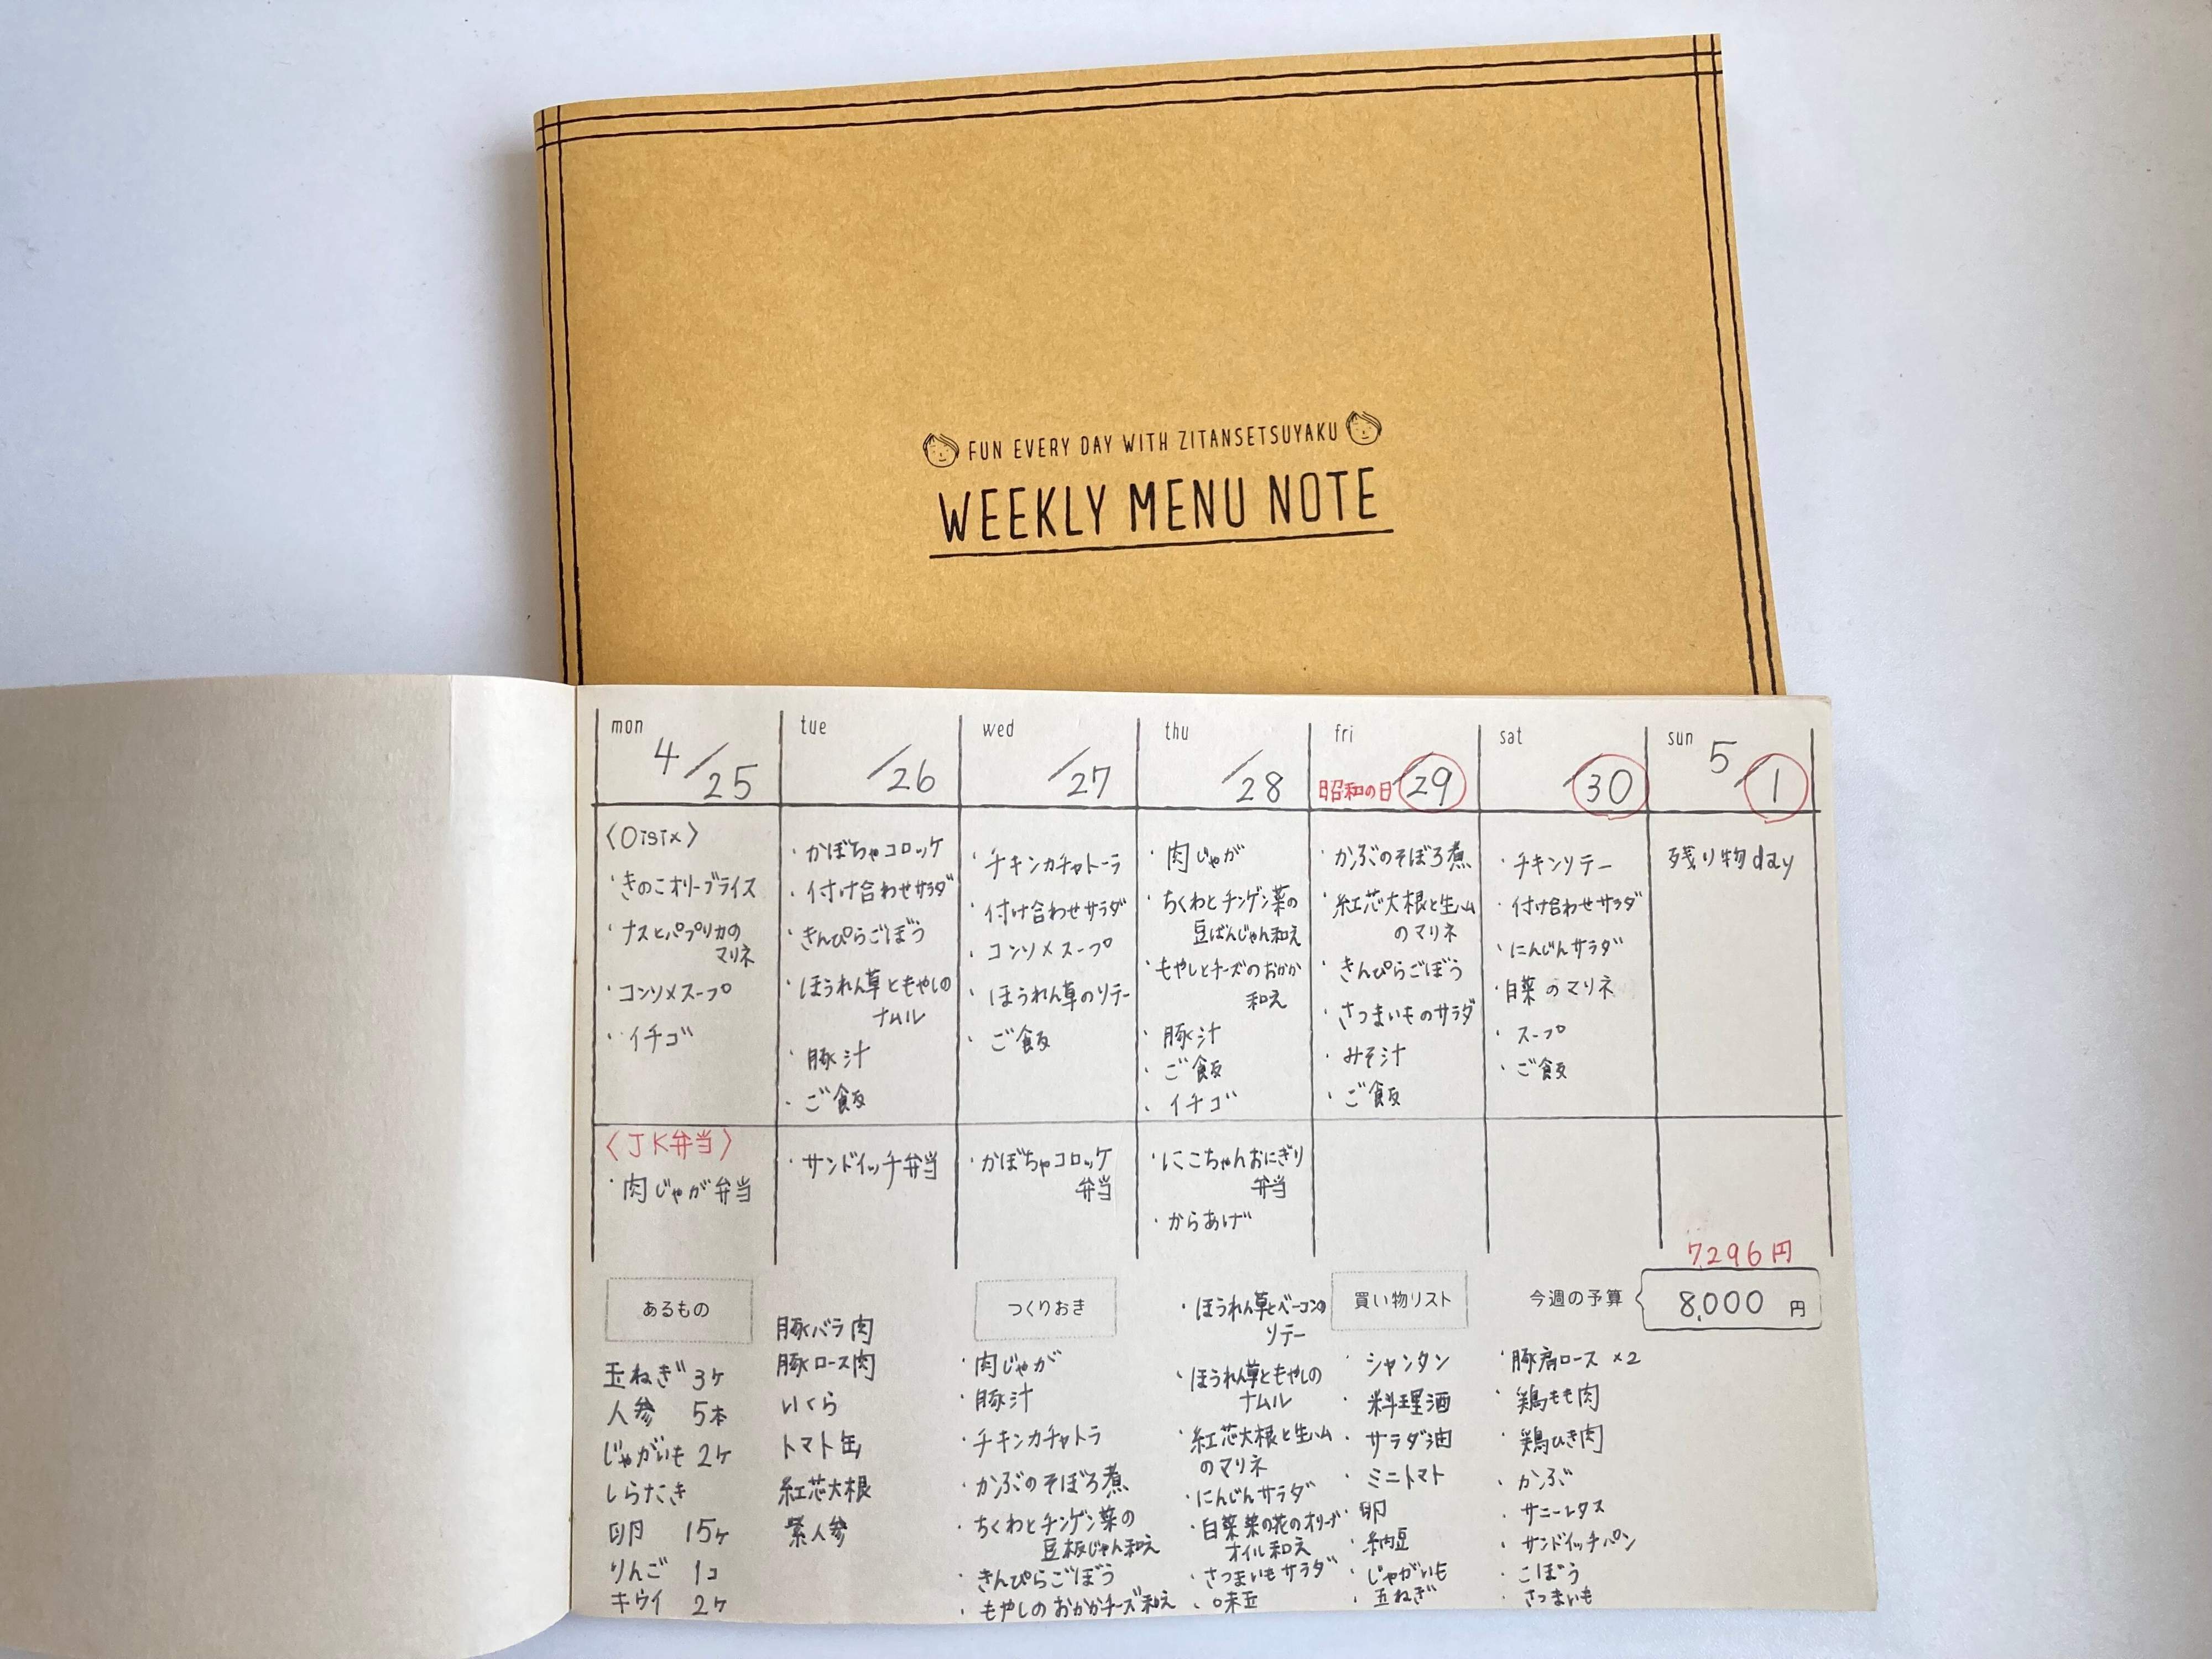 FUN EVERY DAY WITH ZITANSETSUYAKU
WEEKLY MENU NOTE
mon
4/25
〈Oisix〉
・きのこオリーブライス
・ナスとパプリカの
マリネ
・コンソメスープ
・イチゴ
〈JK弁当〉
・肉じゃが弁当
tue
/26
・かぼちゃコロッケ
・付け合わせサラダ
・きんぴらごぼう
・ほうれん草ともやしの
ナムル
・豚汁
・ご飯
・サンドイッチ弁当
wed
/27
・チキンカチャトーラ
・付け合わせサラダ
・コンソメスープ
・ほうれん草のソテー
・ご飯
・かぼちゃコロッケ
弁当
thu
/28
・肉じゃが
・ちくわとチンゲン菜の
豆ばんじゃん和え
・もやしとチーズのおかか
和え
・豚汁
・ご飯
・イチゴ
・にこちゃんおにぎり
弁当
・からあげ
fri
昭和の日 /29
・かぶのそぼろ煮
・紅芯大根と生ハム
のマリネ
・きんぴらごぼう
・さつまいものサラダ
・みそ汁
・ご飯
sat
/30
・チキンソテー
・付け合わせサラダ
・にんじんサラダ
・白菜のマリネ
・スープ
・ご飯
sun
5/1
残り物day
7,296円
今週の予算 8,000 円
あるもの
玉ねぎ 3ヶ
人参 5本
じゃがいも 2ヶ
しらたき
卵 15ヶ
りんご 1コ
キウイ 2ヶ
豚バラ肉
豚ロース肉
いくら
トマト缶
紅芯大根
紫人参
つくりおき
・肉じゃが
・豚汁
・チキンカチャトラ
・かぶのそぼろ煮
・ちくわとチンゲン菜の
豆板じゃん和え
・きんぴらごぼう
・もやしのおかかチーズ和え
・ほうれん草とベーコンの
ソテー
・ほうれん草ともやしの
ナムル
・紅芯大根と生ハム
のマリネ
・にんじんサラダ
・白菜菜の花のオリーブ
オイル和え
・さつまいもサラダ
・味玉
買い物リスト
・シャンタン
・料理酒
・サラダ油
・ミニトマト
・卵
・納豆
・じゃがいも
・玉ねぎ
・豚肩ロース ×2
・鶏もも肉
・鶏ひき肉
・かぶ
・サニーレタス
・サンドイッチパン
・ごぼう
・さつまいも